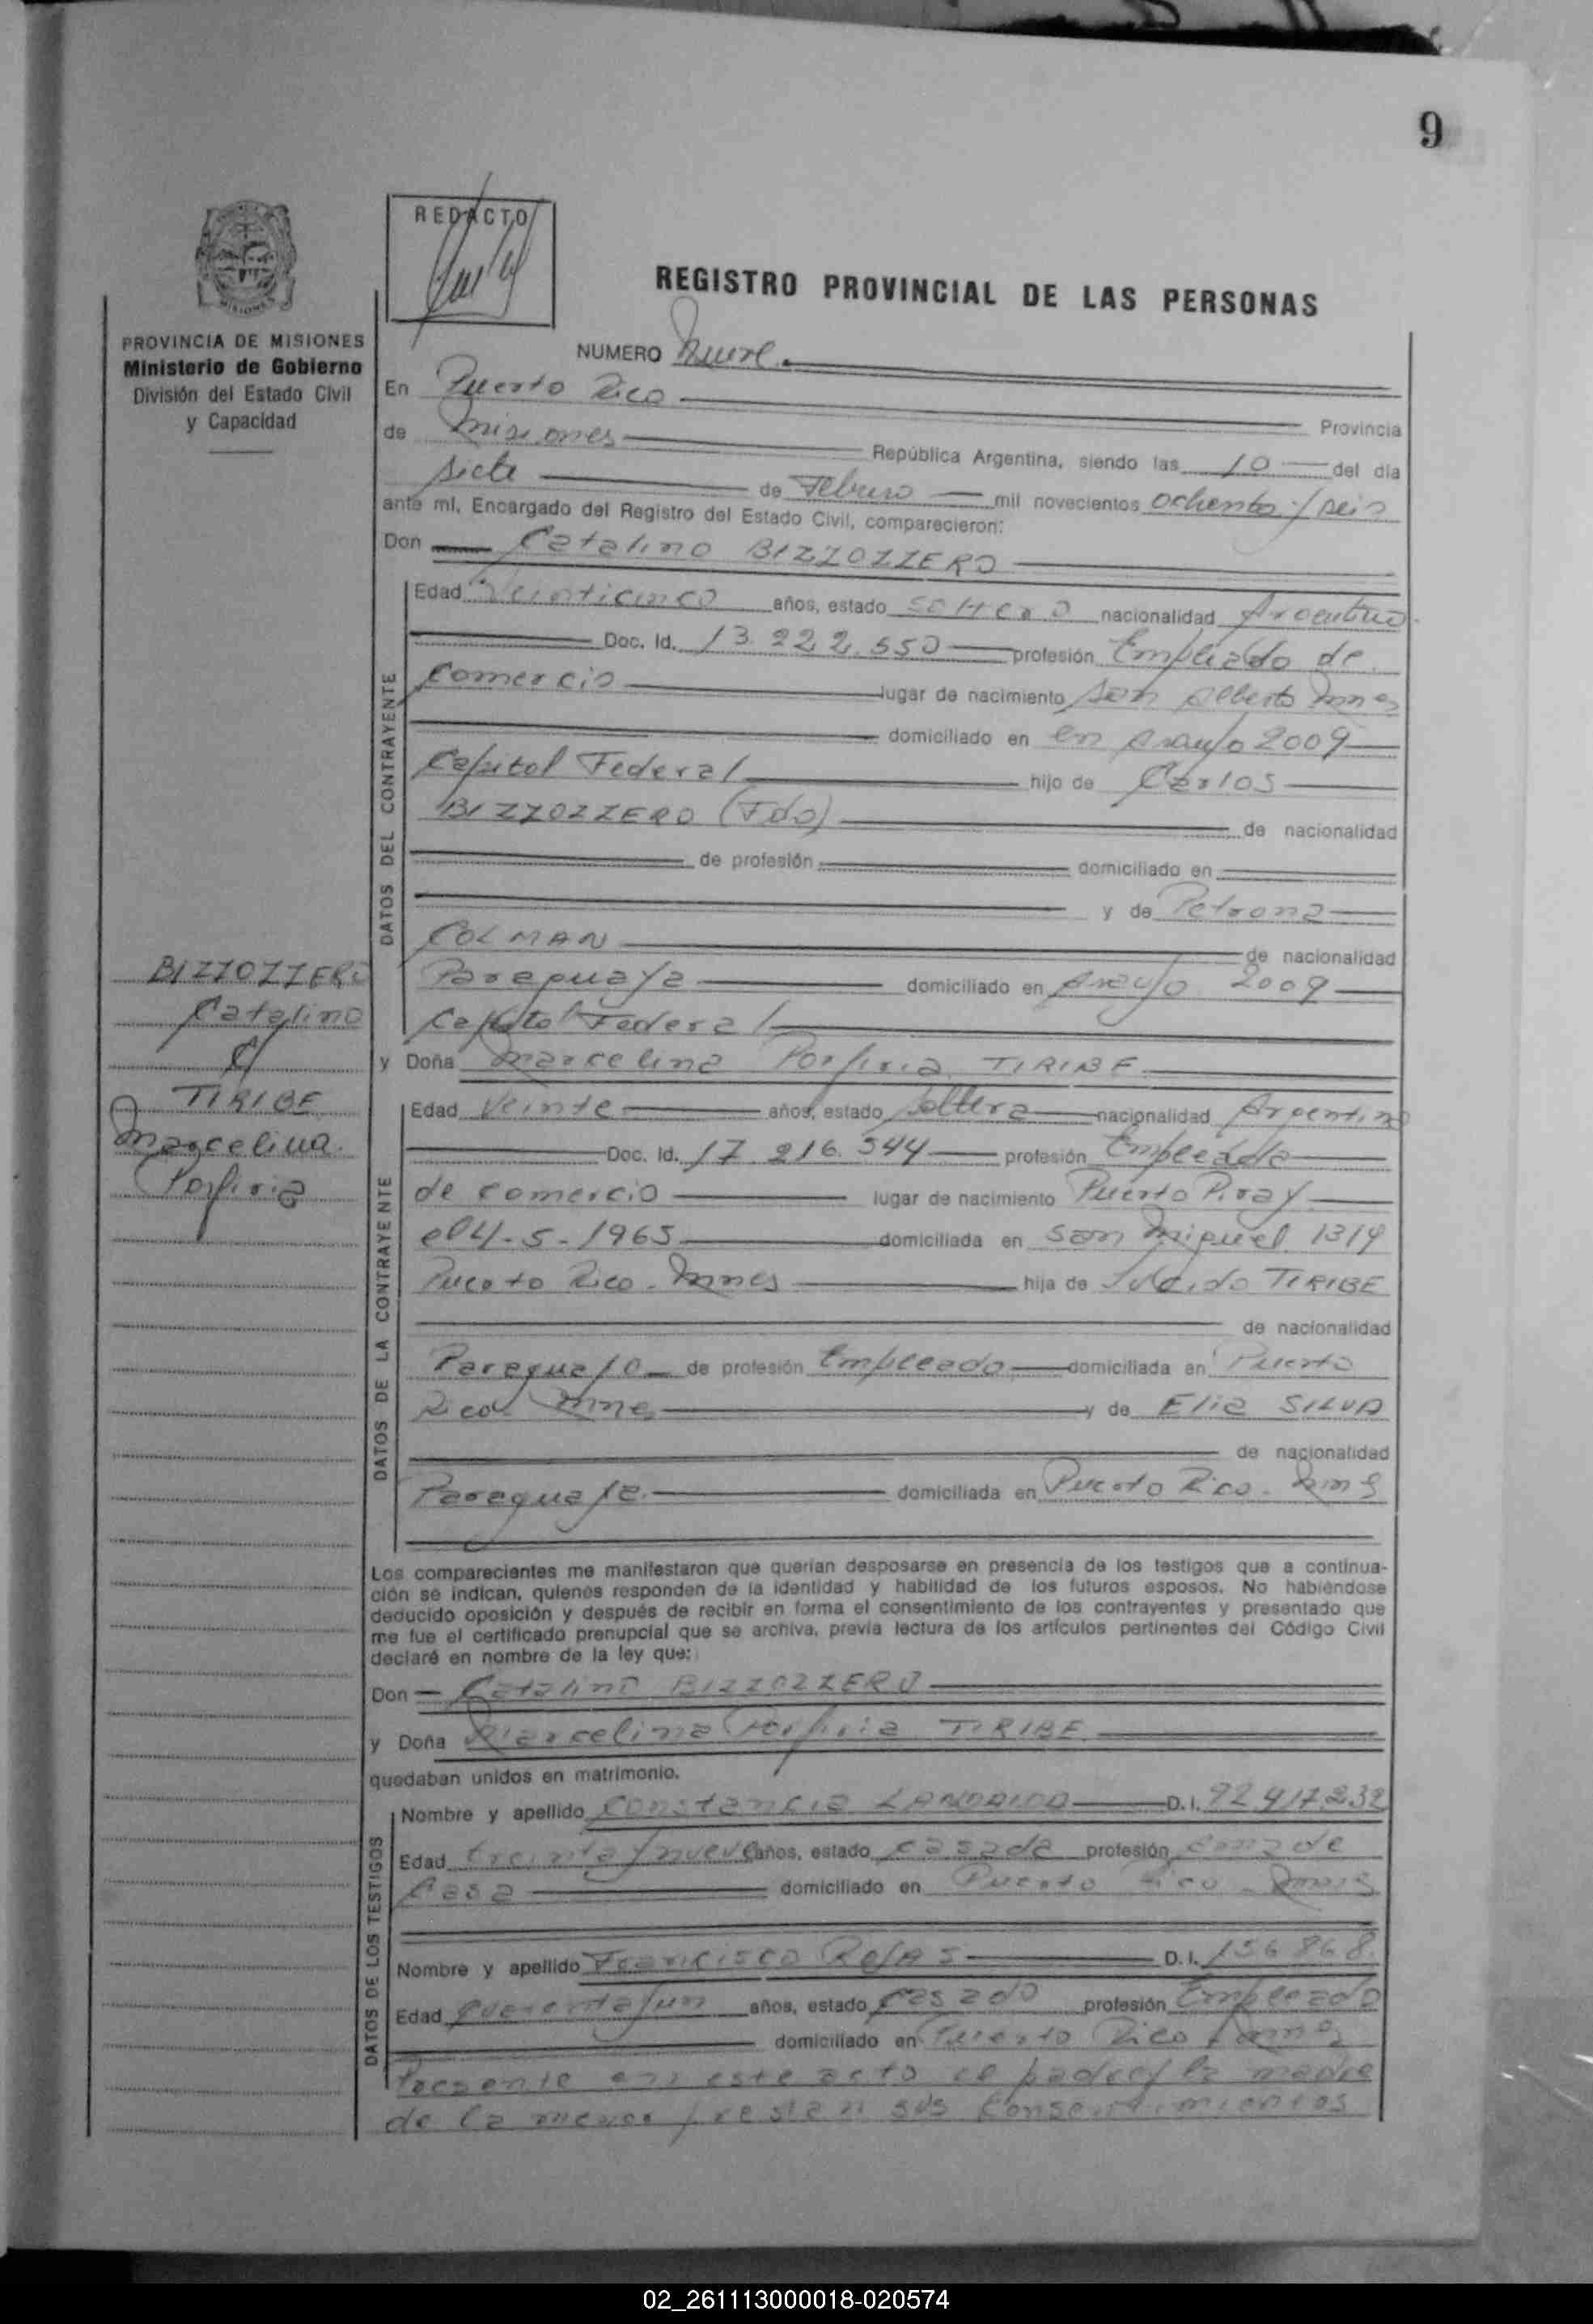 9
REDACTO
REGISTRO PROVINCIAL DE LAS PERSONAS
PROVINCIA DE MISIONES
Ministerio de Gobierno
División del Estado Civil
y Capacidad
NUMERO Nueve.
En Puerto Rico Provincia
de Misiones República Argentina, siendo las 10 del día
siete de Febrero mil novecientos ochenta y seis
ante mí, Encargado del Registro del Estado Civil, comparecieron:
Don Catalino BIZZOZZERO
DATOS DEL CONTRAYENTE
Edad Veinticinco años, estado soltero nacionalidad Argentino
Doc. Id. 13.222.550 profesión Empleado de
comercio lugar de nacimiento San Alberto Mnes
domiciliado en en Araujo 2009
Capital Federal hijo de Carlos
BIZZOZZERO (Fdo) de nacionalidad
de profesión domiciliado en
y de Petrona
COLMAN de nacionalidad
Paraguaya domiciliado en Araujo 2009
Capital Federal
BIZZOZZERO
Catalino
c/
TIRIBE
Marcelina
Porfiria
y Doña Marcelina Porfiria TIRIBE
DATOS DE LA CONTRAYENTE
Edad Veinte años, estado soltera nacionalidad Argentina
Doc. Id. 17.216.544 profesión Empleada
de comercio lugar de nacimiento Puerto Piray
el 4-5-1965 domiciliada en San Miguel 1319
Puerto Rico - Mnes hija de TIRIBE
de nacionalidad
Paraguayo de profesión Empleado domiciliada en Puerto
Rico Mnes y de Elia SILVA
de nacionalidad
Paraguaya domiciliada en Puerto Rico - Mnes
Los comparecientes me manifestaron que querían desposarse en presencia de los testigos que a continua-
ción se indican, quienes responden de la identidad y habilidad de los futuros esposos. No habiéndose
deducido oposición y después de recibir en forma el consentimiento de los contrayentes y presentado que
me fue el certificado prenupcial que se archiva, previa lectura de los artículos pertinentes del Código Civil
declaré en nombre de la ley que:
Don Catalino BIZZOZZERO
y Doña Marcelina Porfiria TIRIBE
quedaban unidos en matrimonio.
DATOS DE LOS TESTIGOS
Nombre y apellido Constancia D.I. 92.417.232
Edad treinta y nueve años, estado casada profesión ama de
Casa domiciliado en Puerto Rico - Mnes
Nombre y apellido Francisco ROJAS D.I. 156.868
Edad cuarenta y un años, estado casado profesión Empleado
domiciliado en Puerto Rico Mnes
Presente en este acto el padre y la madre
de la menor prestan sus consentimientos
02_261113000018-020574